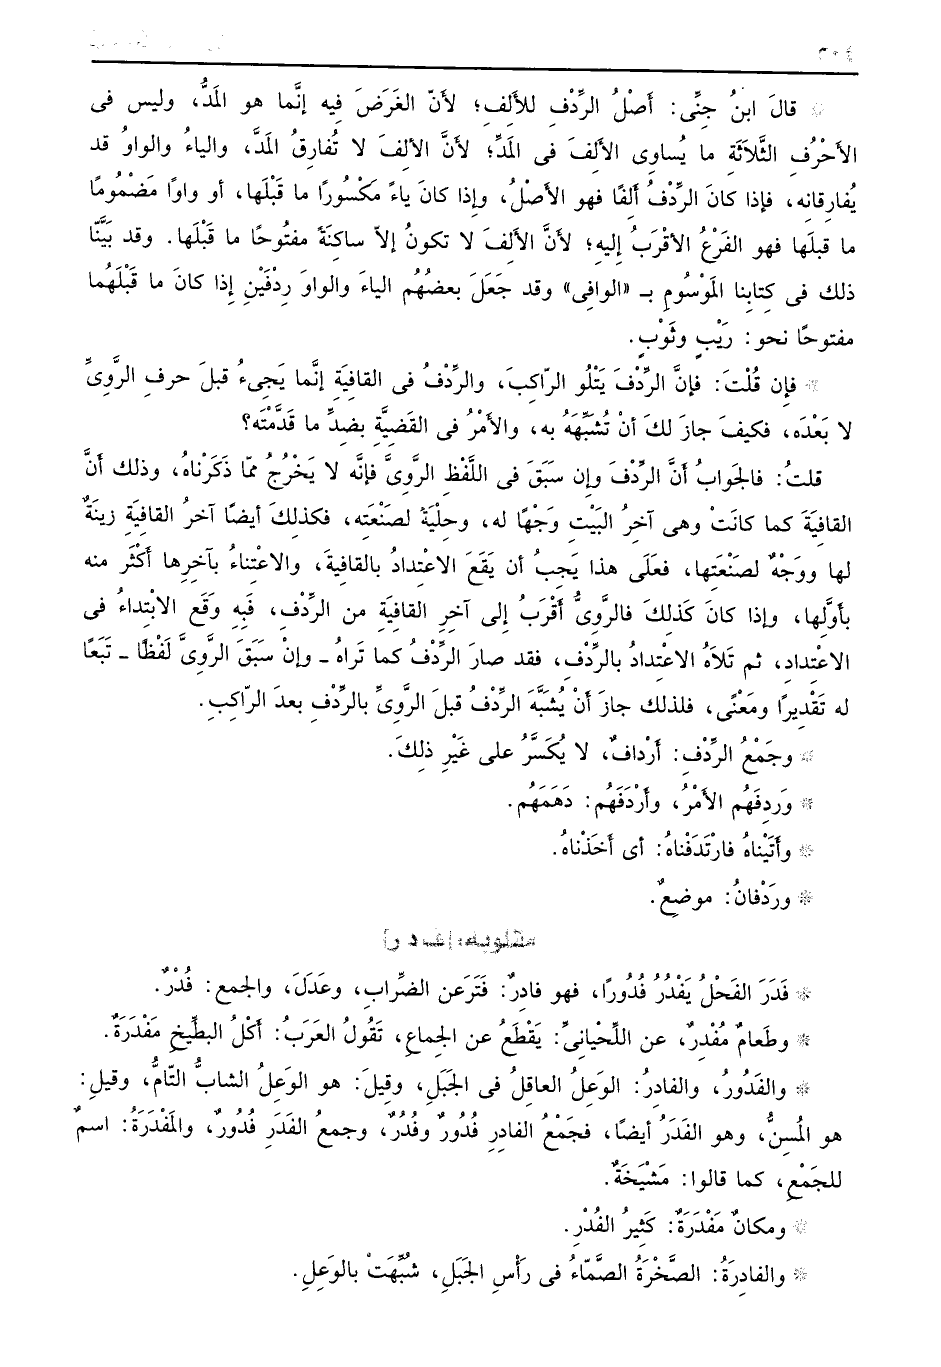 ٣٠٤
* قالَ ابنُ جنِّى: أصْلُ الرِّدْفِ للألِف؛ لأنّ الغَرَضَ فيه إنَّما هو المَدُّ، وليس فى
الأحْرُفِ الثَّلاثَةِ ما يُساوِى الألِفَ فى المَدِّ؛ لأنَّ الألِفَ لا تُفارِقُ المَدَّ، والياءُ والواوُ قد
يُفارِقانه، فإذا كانَ الرِّدْفُ ألِفًا فهو الأصْلُ، وإذا كانَ ياءً مَكْسُورًا ما قَبْلَها، أو واوًا مَضْمُومًا
ما قبلَها فهو الفَرْعُ الأقْرَبُ إليه؛ لأنَّ الألِفَ لا تكونُ إلاّ ساكنَةً مفتُوحًا ما قَبْلَها. وقد بَيَّنّا
ذلك فى كتابِنا المَوْسُومِ بـ «الوافِى» وقد جَعَلَ بعضُهُم الياءَ والواوَ رِدْفَيْنِ إذا كانَ ما قَبْلَهُما
مفتوحًا نحو: رَيْبٍ وثَوْبٍ.
* فإن قُلْتَ: فإنَّ الرِّدْفَ يَتْلُو الرّاكبَ، والرِّدْفُ فى القافِيَةِ إنَّما يَجِىءُ قبلَ حرفِ الرَّوِىِّ
لا بَعْدَه، فكيفَ جازَ لكَ أنْ تُشَبِّهَهُ به، والأمْرُ فى القَضِيَّةِ بضِدِّ ما قَدَّمْتَه؟
قلتُ: فالجَوابُ أنَّ الرِّدْفَ وإن سَبَقَ فى اللَّفْظِ الرَّوِىَّ فإنه لا يَخْرُجُ ممّا ذَكَرْناهُ، وذلك أنَّ
القافِيَةَ كما كانَتْ وهى آخِرُ البَيْتِ وَجْهًا له، وحِلْيَةً لصَنْعَتِه، فكذلكَ أيضًا آخرُ القافِيَةِ زينَةٌ
لها ووَجْهٌ لصَنْعَتِها، فعَلَى هذا يَجِبُ أن يَقَعَ الاعْتِدادُ بالقافِيةِ، والاعْتِناءُ بآخِرِها أكْثَرَ منه
بأوَّلِها، وإذا كانَ كَذلكَ فالرَّوِىُّ أقْرَبُ إلى آخِرِ القافيَةِ من الرِّدْفِ، فَبِه وَقَع الابْتِداءُ فى
الاعْتِدادِ، ثم تَلاَهُ الاعْتِدادُ بالرِّدْفِ، فقد صارَ الرِّدْفُ كما تَراهُ ـ وإنْ سَبَقَ الرَّوِىَّ لَفْظًا ـ تَبَعًا
له تَقْدِيرًا ومَعْنًى، فلذلك جازَ أنْ يُشَبَّهَ الرِّدْفُ قبلَ الرَّوِىِّ بالرِّدْفِ بعدَ الرّاكِبِ.
* وجَمْعُ الرِّدْفِ: أرْدافٌ، لا يُكَسَّرُ على غَيْرِ ذلِكَ.
* ورَدِفَهُم الأمْرُ، وأرْدَفَهُم: دَهَمَهُم.
* وأتَيْناهُ فارْتَدَفْناهُ: أى أخَذْناهُ.
* ورَدْفانُ: موضعٌ.
* فَدَرَ الفَحْلُ يَفْدُرُ فُدُورًا، فهو فادِرٌ: فَتَرَ عن الضِّرابِ، وعَدَلَ، والجمع: فُدْرٌ.
* وطَعامٌ مُفْدِرٌ، عن اللِّحْيانِىِّ: يَقْطَعُ عن الجِماعِ، تَقُولُ العَرَبُ: أكْلُ البِطِّيخِ مَفْدَرَةٌ.
* والفَدُورُ، والفادِرُ: الوَعِلُ العاقِلُ فى الجَبَلِ، وقِيلَ: هو الوَعِلُ الشابُّ التّامُّ، وقِيل:
هو المُسنُّ، وهو الفَدَرُ أيضًا، فجَمْعُ الفادِرِ فُدُورٌ وفُدُرٌ، وجمعُ الفَدَرِ فُدُورٌ، والمَفْدَرَةُ: اسمٌ
للجَمْعِ، كما قالوا: مَشْيَخَةٌ.
* ومكانٌ مَفْدَرَةٌ: كَثِيرُ الفُدْرِ.
* والفادِرَةُ: الصَّخْرَةُ الصَّمّاءُ فى رَأْسِ الجَبَلِ، شُبِّهَتْ بالوَعِلِ.